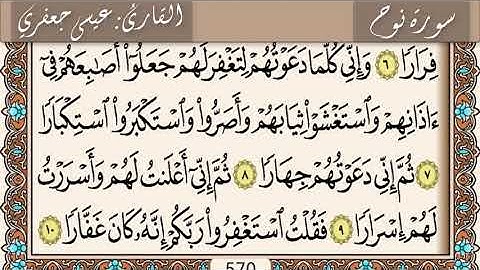 سورة نوح
القارئ: عيسى جعفري
فِرَارًا ٦ وَإِنِّي كُلَّمَا دَعَوْتُهُمْ لِتَغْفِرَ لَهُمْ جَعَلُوٓا۟ أَصَٰبِعَهُمْ فِىٓ
ءَاذَانِهِمْ وَٱسْتَغْشَوْا۟ ثِيَابَهُمْ وَأَصَرُّوا۟ وَٱسْتَكْبَرُوا۟ ٱسْتِكْبَارًا
٧ ثُمَّ إِنِّي دَعَوْتُهُمْ جِهَارًا ٨ ثُمَّ إِنِّيٓ أَعْلَنتُ لَهُمْ وَأَسْرَرْتُ
لَهُمْ إِسْرَارًا ٩ فَقُلْتُ ٱسْتَغْفِرُوا۟ رَبَّكُمْ إِنَّهُۥ كَانَ غَفَّارًا ١٠
570